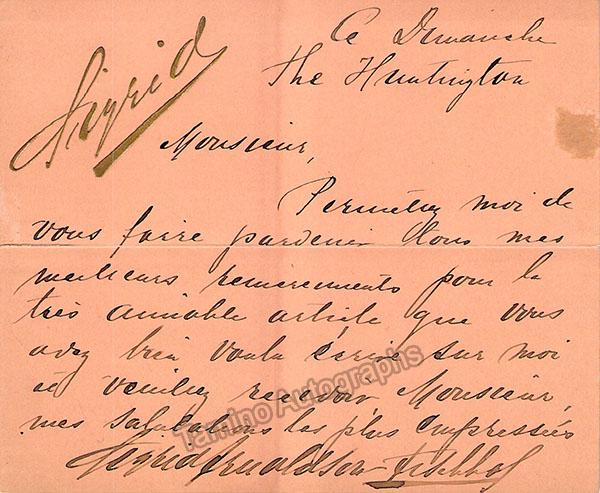 Sigrid
Ce Dimanche
The Huntington
Monsieur,
Permettez moi de
vous faire parvenir tous mes
meilleurs remerciements pour le
très aimable article que vous
avez bien voulu écrire sur moi
et veuillez recevoir Monsieur,
mes salutations les plus empressées
Sigrid Arnoldson-Fischhof
Tamino Autographs